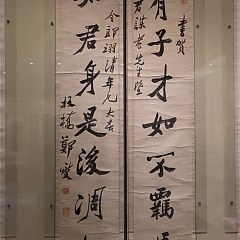 書賀
有子才如不羈
老先生暨
令郎翊清年兄大喜
君身是後凋
板橋鄭燮